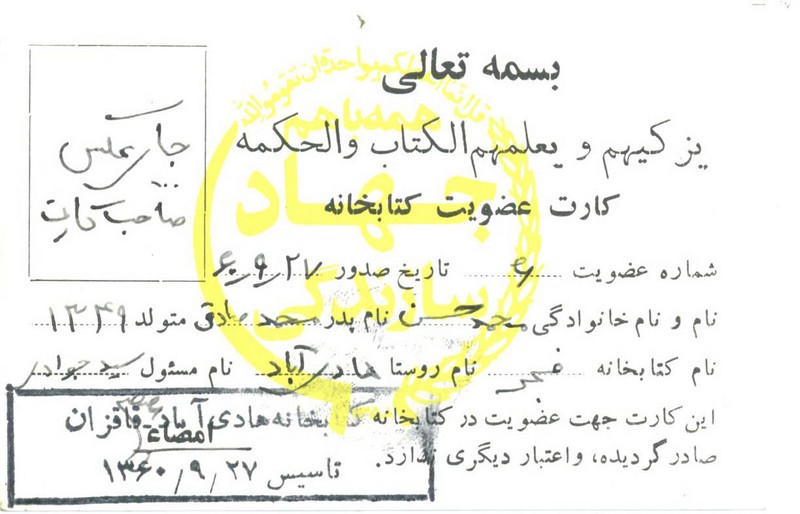 بسمه تعالی
یزکیهم و یعلمهم الکتاب والحکمه
کارت عضویت کتابخانه
جای عکس
صاحب کارت
شماره عضویت ۶ تاریخ صدور ۶۰/۹/۲۷
نام و نام خانوادگی محمد حسن نام پدر محمد صادق متولد ۱۳۴۹
نام کتابخانه فجر نام روستا هادی آباد نام مسئول سید جوادی
این کارت جهت عضویت در کتابخانه
صادر گردیده، و اعتبار دیگری ندارد.
امضاء
کتابخانه هادی آباد قاقزان
تاسیس ۱۳۶۰/۹/۲۷
همه با هم
جهاد
سازندگی